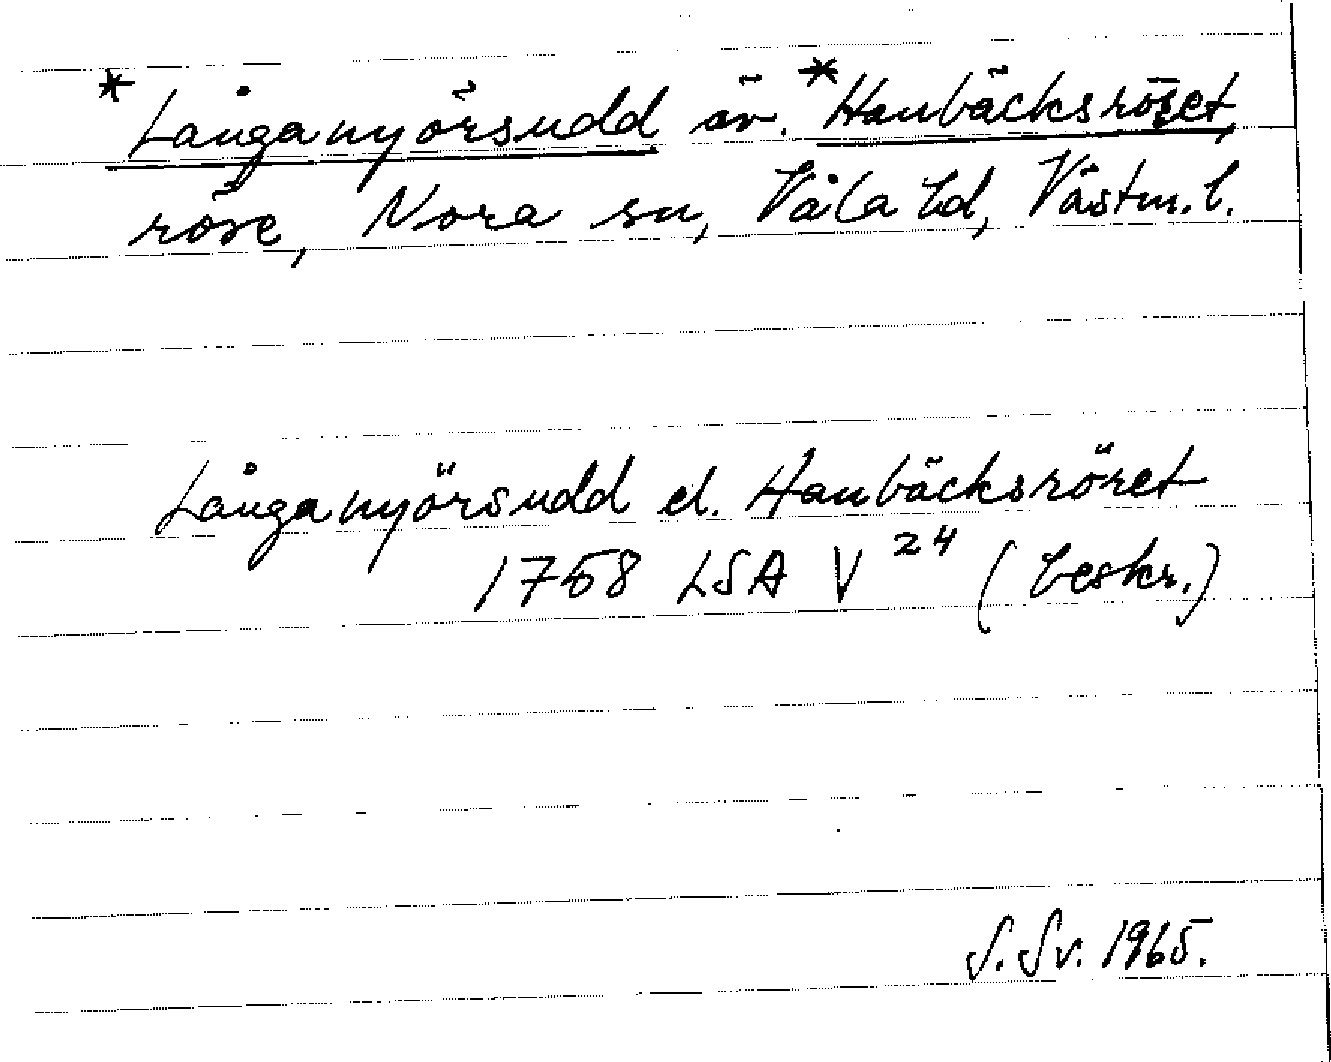 *Långanyörsudd äv. *Hanbäcksröset,
röse, Nora sn, Våla hd, Västm. l.
Långanyörsudd el. Hanbäcksröret
1758 LSA V 24 (beskr.)
S. Sv. 1965.